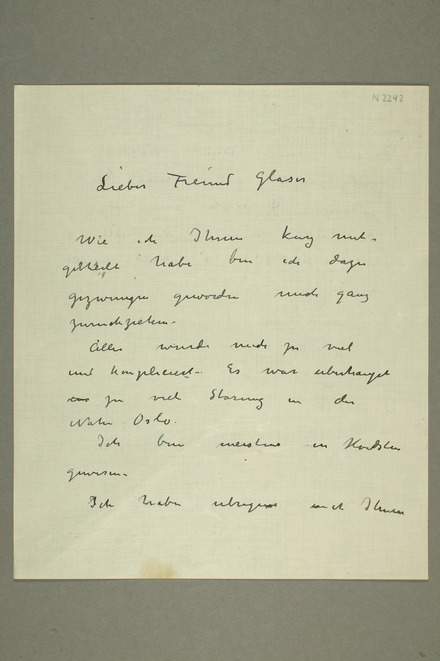 N 2242
Lieber Freund Glaser
Wie ich Ihnen kurz mit-
getheilt habe bin ich dazu
gezwungen geworden mich ganz
zurückziehen.
Alles wurde mich zu viel
und kompliciert. Es war überhaupt
zu viel Störung in der
Nähe Oslo.
Ich bin meistens in
gewesen.
Ich habe übrigens Ihnen